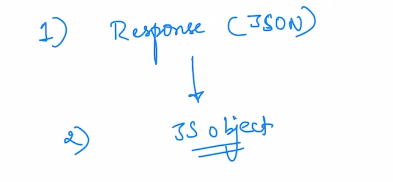 1) Response (JSON)
2) JS object